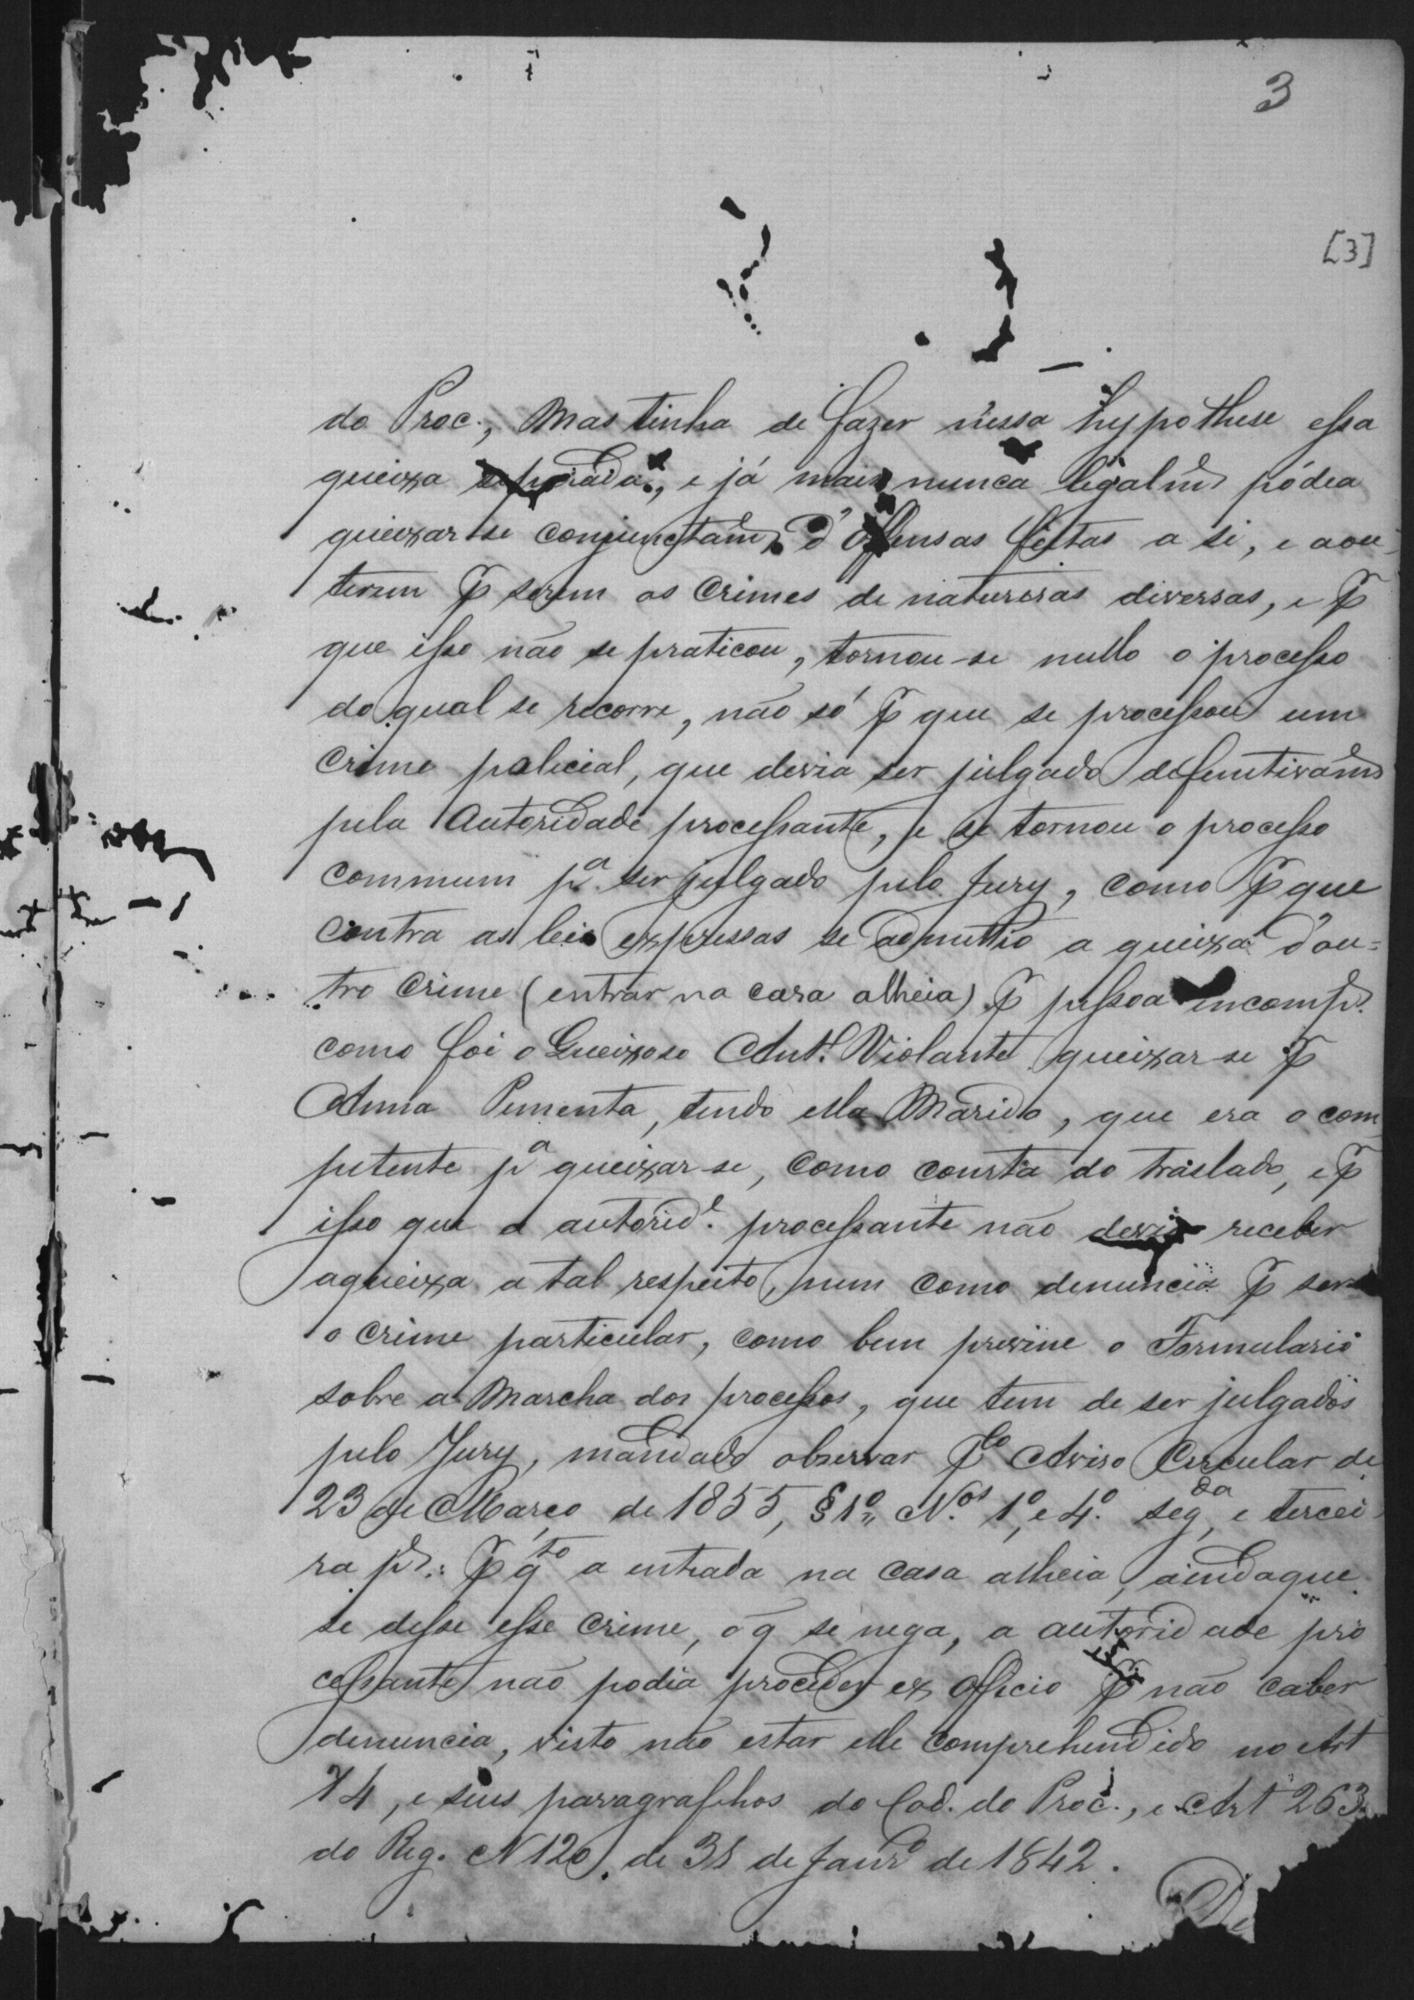 3
[3]
do Proc., mas tinha de fazer nessa hypothese essa
queixa separada, e já mais nunca legalm.e pódea
queixar-se conjunctam.e d'offensas feitas a si, e a ou-
trem p serem os crimes de naturesas diversas, e p
que isso não se praticou, tornou-se nullo o processo
do qual se recorre, não só p que se processou um
crime policial, que devia ser julgado defenitivam.e
pela Autoridade processante, e se tornou o processo
commum p.a ser julgado pelo Jury, como p que
contra as leis expressas se admittio a queixa d'ou=
tro crime (entrar na casa alheia) p pessoa incomp.e
como foi o Queixoso Ant.o Violante queixar-se p
Anna Pimenta, tendo ella Marido, que era o com
petente p.a queixar-se, como consta do traslado, e p
isso que a autorid.e processante não devia receber
a queixa a tal respeito, nem como denuncia p ser
o crime particular, como bem previne o Formulario
sobre a Marcha dos processos, que tem de ser julgados
pelo Jury, mandado observar p.lo Aviso Circular de
23 de Março de 1855, § 1.o N.os 1.o e 4.o seg.da, e tercei-
ra p.e: p q.to a entrada na casa alheia, ainda que
se desse esse crime, o q se nega, a autoridade pro
cessante não podia proceder ex officio p não caber
denuncia, visto não estar elle comprehendido no Art
74, e seus paragraphos do Cod. do Proc., e Art 263
do Reg. N 120, de 31 de Janr.o de 1842.
De